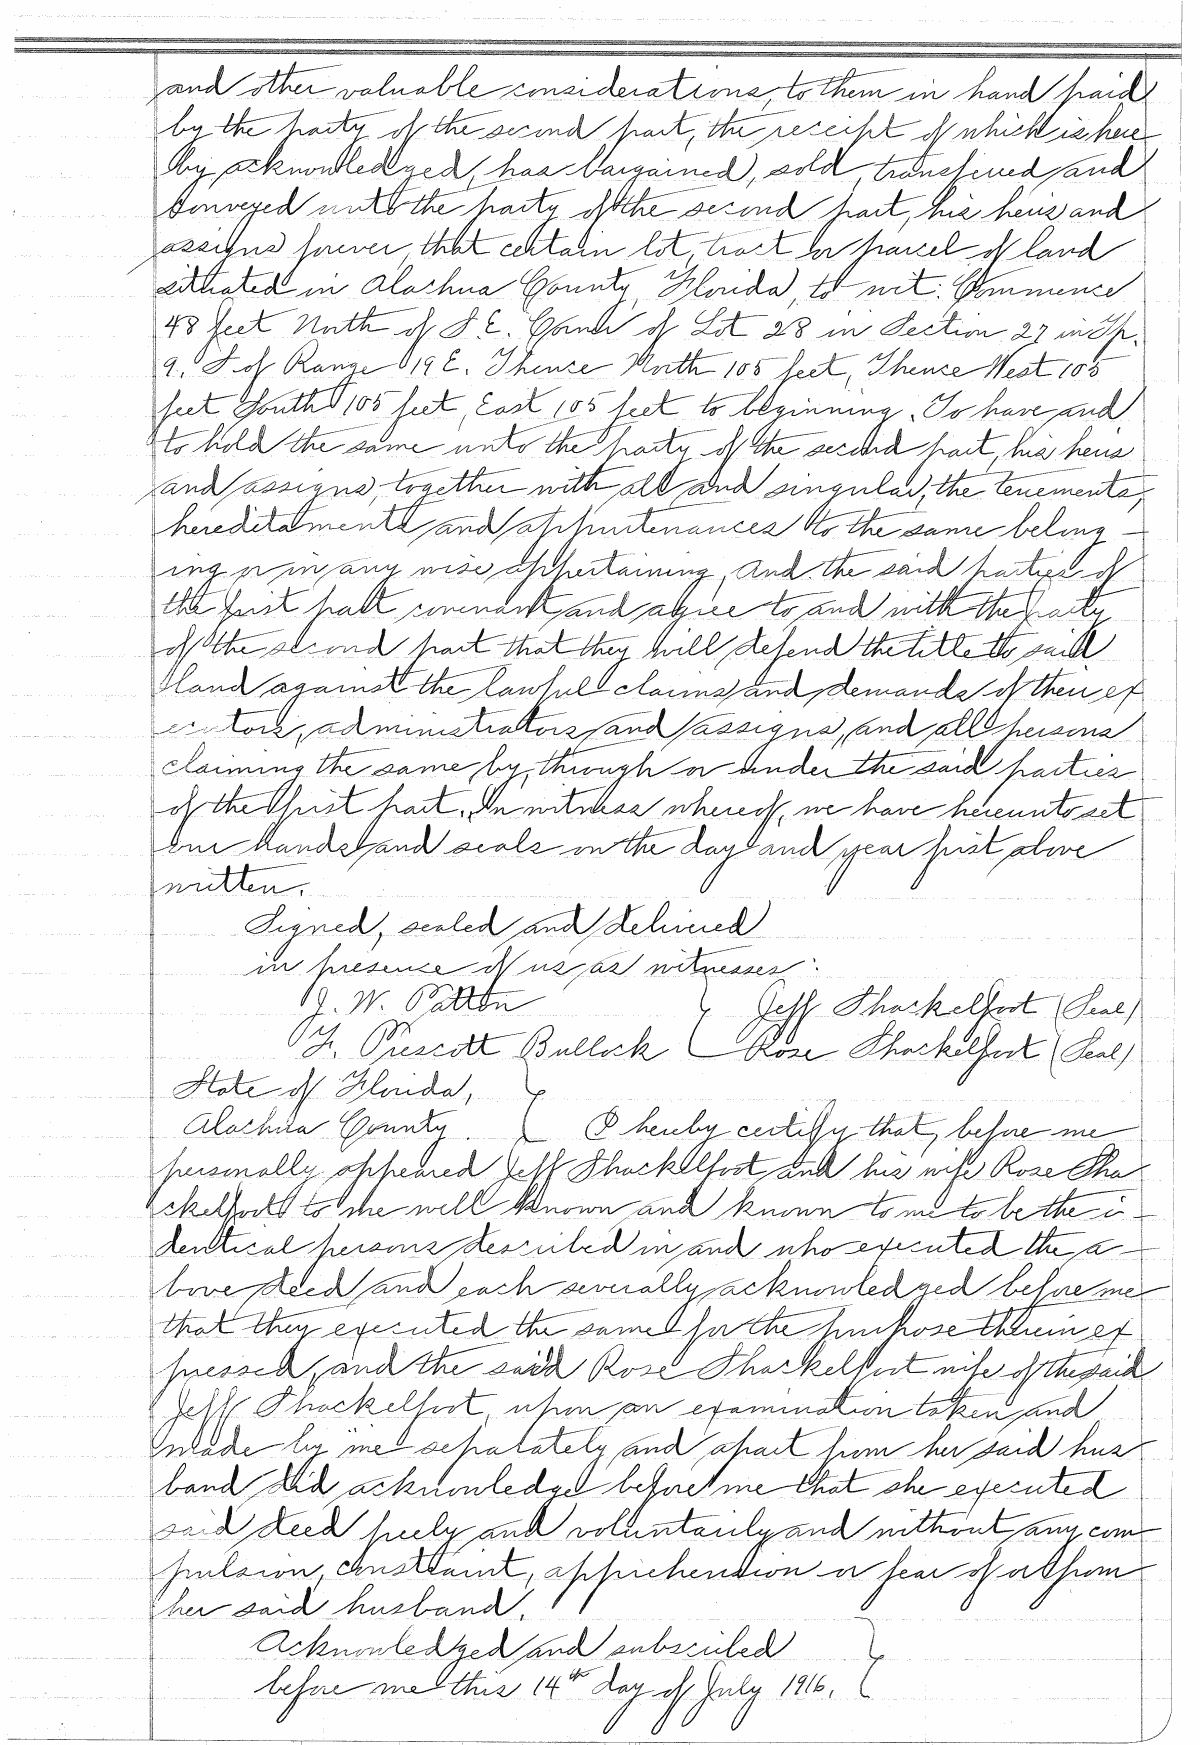 and other valuable considerations, to them in hand paid
by the party of the second part, the receipt of which is here
by acknowledged, has bargained, sold, transferred and
conveyed unto the party of the second part, his heirs and
assigns forever, that certain lot, tract or parcel of land
situated in Alachua County, Florida, to wit: Commence
48 feet North of S.E. Corner of Lot 28 in Section 27 in Tp.
9. S of Range 19 E. Thence North 105 feet, Thence West 105
feet South 105 feet, East 105 feet to beginning. To have and
to hold the same unto the party of the second part, his heirs
and assigns, together with all and singular, the tenements,
hereditaments and appurtenances to the same belong -
ing or in any wise appertaining, And the said parties of
the first part covenant and agree to and with the party
of the second part that they will defend the title to said
land against the lawful claims and demands of their ex
ecutors, administrators and assigns, and all persons
claiming the same by, through or under the said parties
of the first part. In witness whereof, we have hereunto set
our hands and seals on the day and year first above
written.
Signed, sealed and delivered
in presence of us as witnesses:
J. W. Patton } Jeff Shackelfoot (Seal)
F. Prescott Bullock } Rose Shackelfoot (Seal)
State of Florida,
Alachua County. } I hereby certify that, before me
personally appeared Jeff Shackelfoot and his wife Rose Sha
ckelfoot to me well known and known to me to be the i -
dentical persons described in and who executed the a -
bove deed and each severally acknowledged before me
that they executed the same for the purpose therein ex
pressed, and the said Rose Shackelfoot wife of the said
Jeff Shackelfoot, upon an examination taken and
made by me separately and apart from her said hus
band did acknowledge before me that she executed
said deed freely and voluntarily and without any com
pulsion, constraint, apprehension or fear of or from
her said husband.
Acknowledged and subscribed
before me this 14th day of July 1916. }